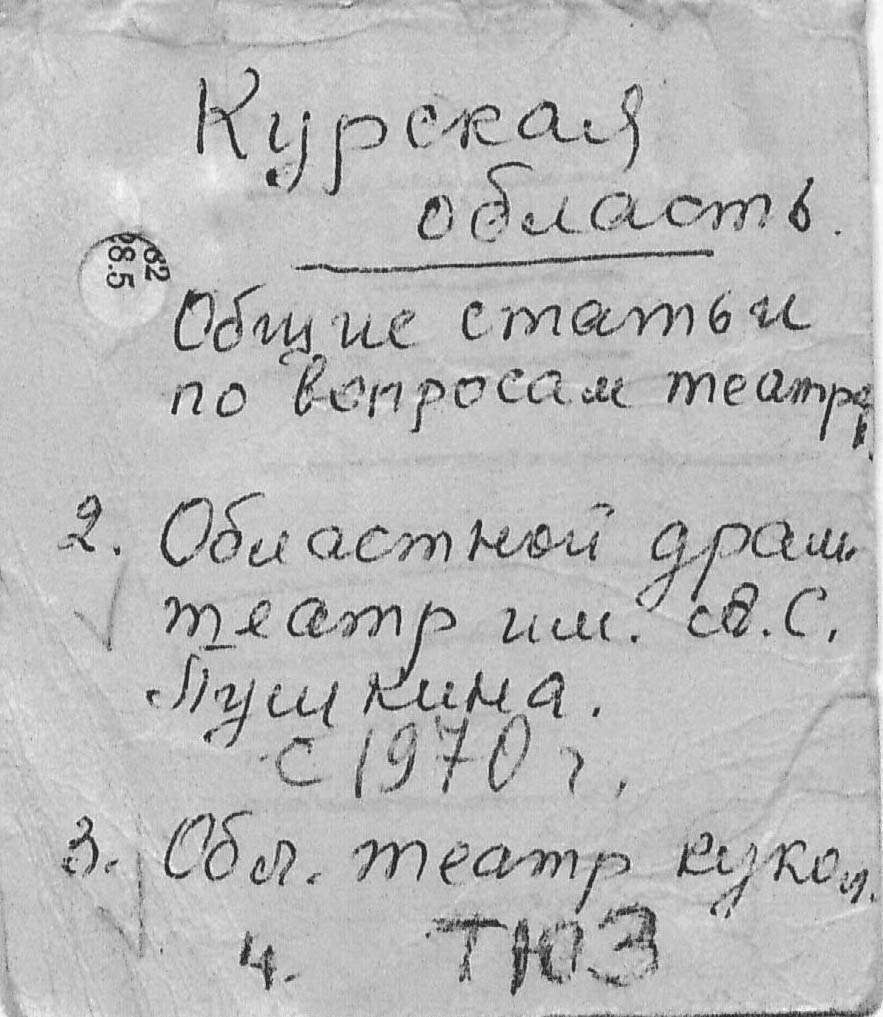 Курская
область.
62
28.5
Общие статьи
по вопросам театра.
2. Областной драм.
театр им. А.С.
Пушкина.
с 1970 г.
3. Обл. театр кукол.
4. ТЮЗ